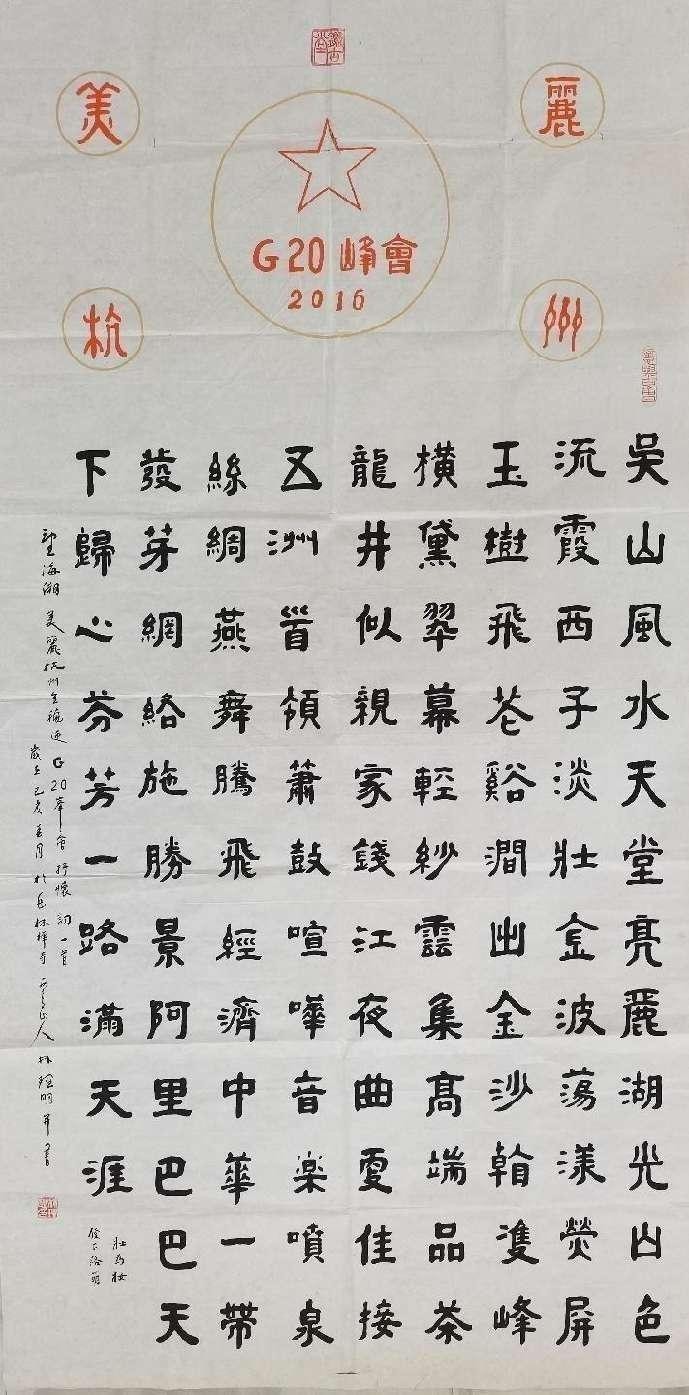 美麗
G20峰會
2016
杭州
吳山風水天堂亮麗湖光山色
流霞西子淡壯金波蕩漾熒屏
玉樹飛花谿澗出金沙翰隻峰
橫黛翠幕輕紗雲集高端品茶
龍井似親家錢江夜曲更佳接
五洲首領簫鼓喧嘩音楽噴泉
絲綢燕舞騰飛經濟中華一帶
發芽網絡施勝景阿里巴巴天
下歸心芬芳一路滿天涯
望海潮 美麗杭州 迎G20峯會抒懷詞一首
歲在己亥 月於 林禪寺 人林 明并書
壯為妝